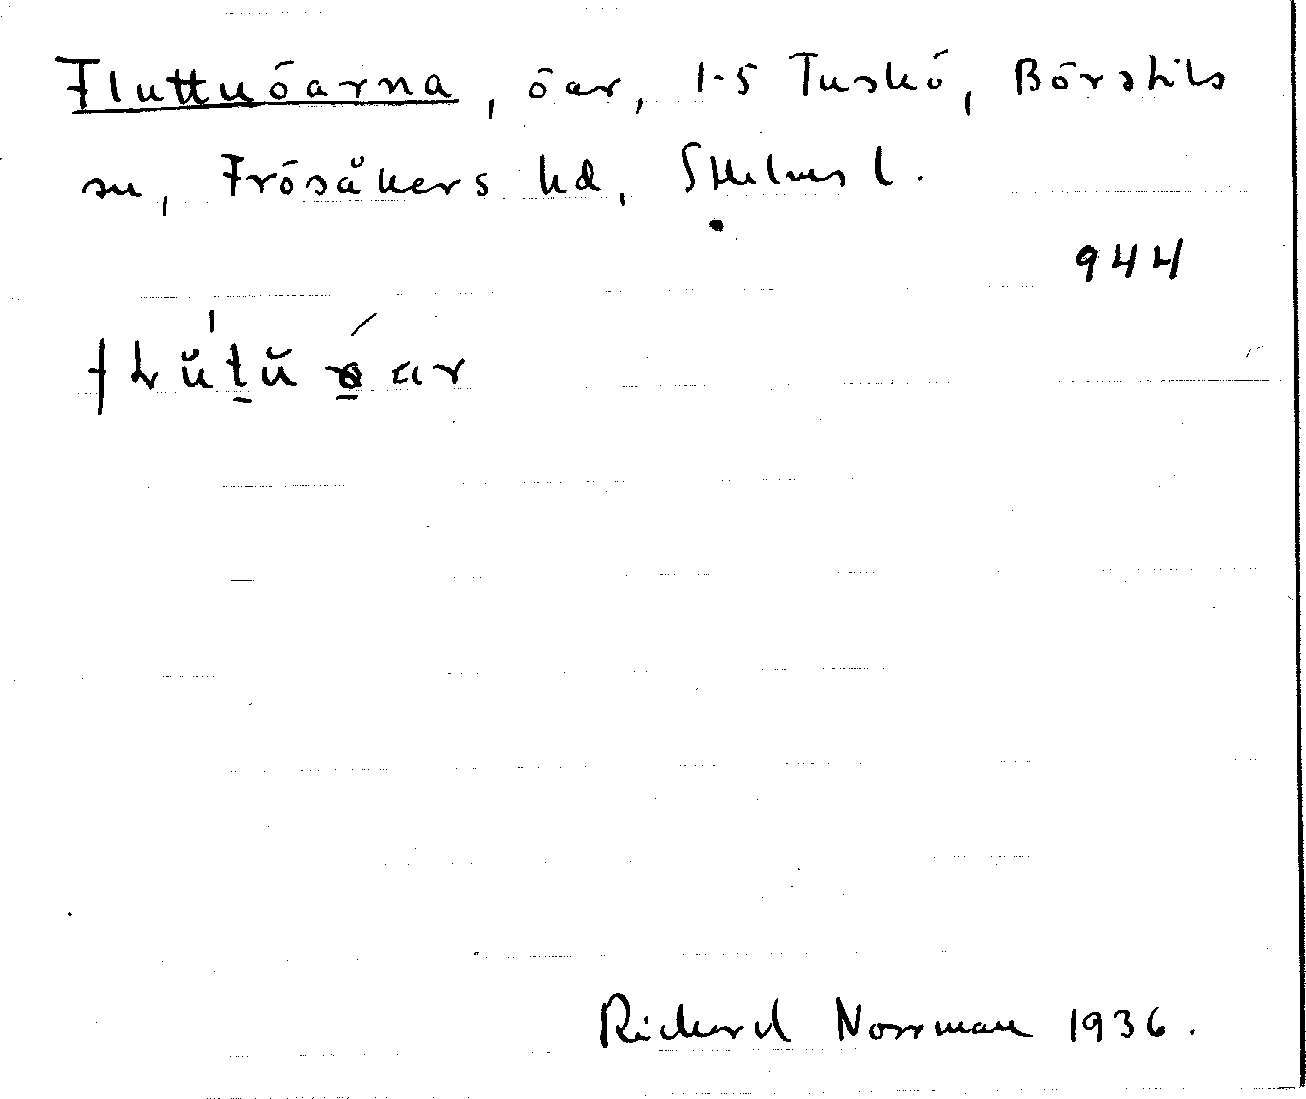 Fluttuöarna, öar, 1-5 Tuskö, Börstils
sn, Frösåkers hd, Sthlms l.
944
Richard Norrman 1936.